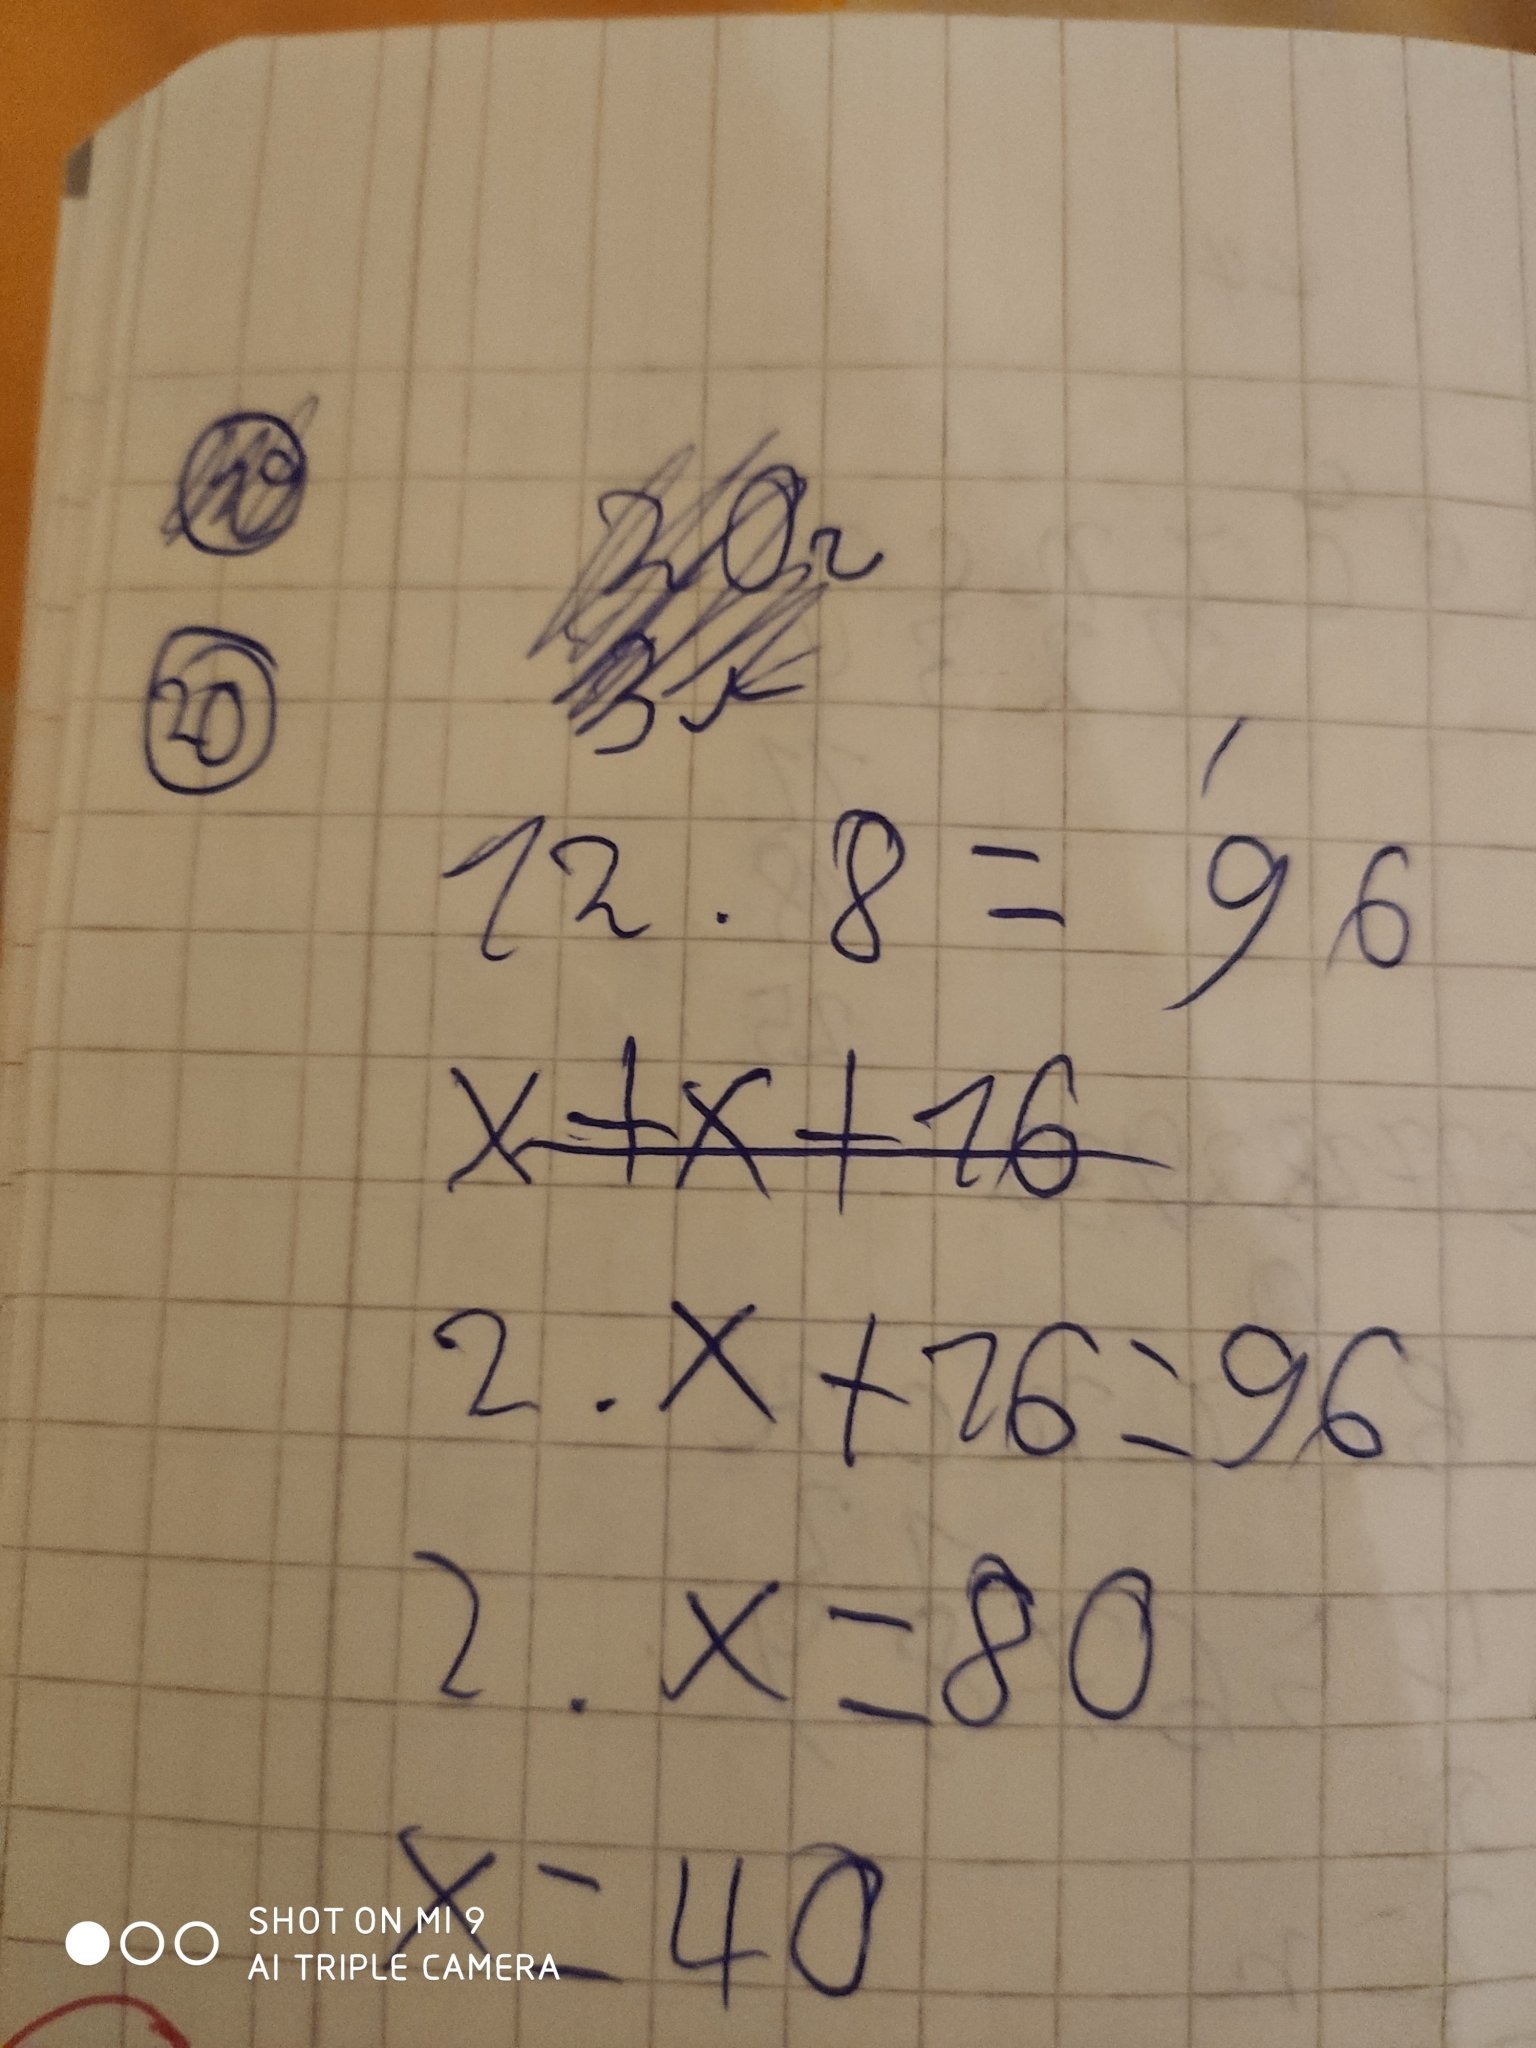 20
12 . 8 = 96
x + x + 16
2 . x + 16 = 96
2 . x = 80
x = 40
SHOT ON MI 9
AI TRIPLE CAMERA